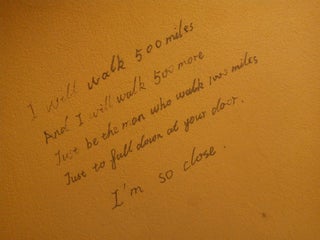 I will walk 500 miles
And I will walk 500 more
Just be the man who walk 1000 miles
Just to fall down at your door.
I'm so close.